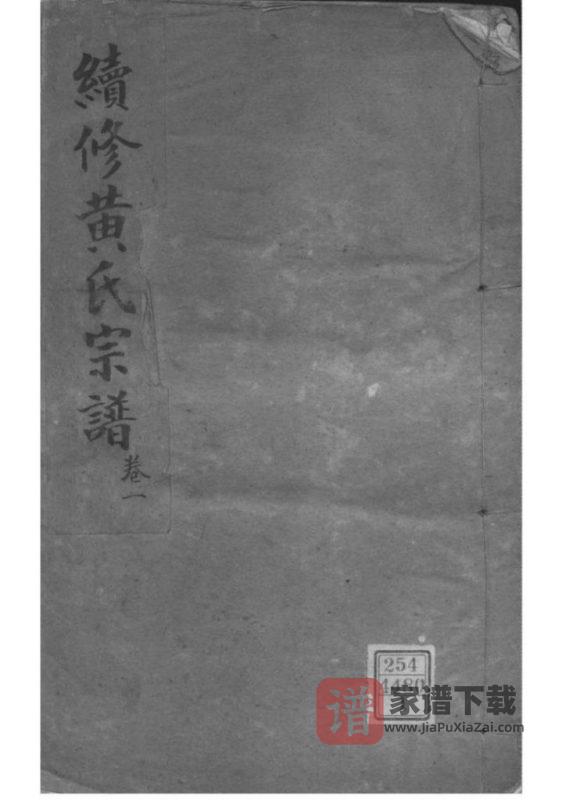 續修黄氏宗譜
卷一
254
4480
谱
家谱下载
www.JiaPuXiaZai.com